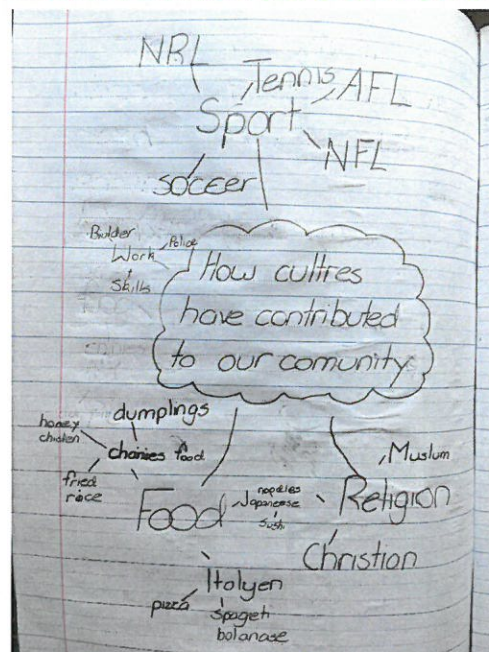 NRL
Tennis
AFL
Sport
NFL
soccer
Builder
Police
Work
+
Skills
How cultres
have contributed
to our comunity
dumplings
honey
chicken
chanies food
fried
rice
Food
noodles
Japaneese
Sushi
Muslum
Religion
Christian
Italyen
pizza
spageti
bolanase